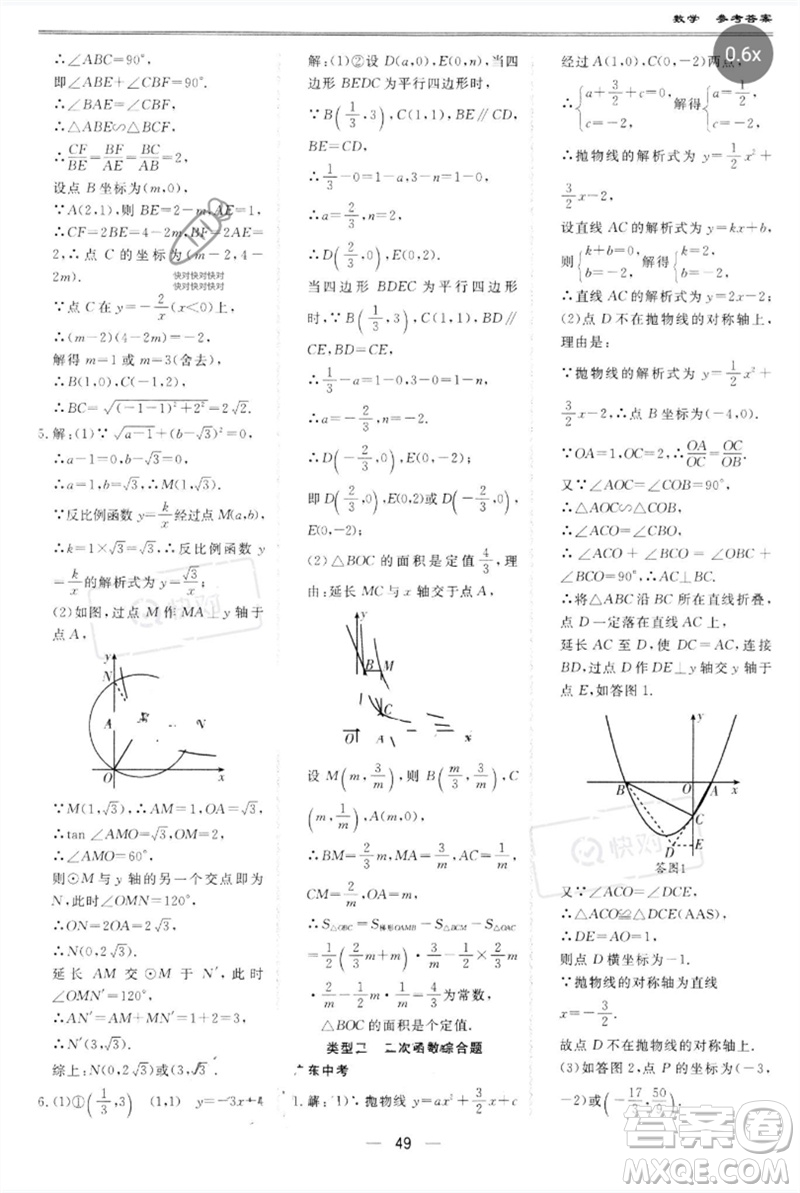 数学 参考答案
0.6x
∴∠ABC=90°,
即∠ABE+∠CBF=90°,
∴∠BAE=∠CBF,
∴△ABE∽△BCF,
∴CF/BE=BF/AE=BC/AB=2,
设点 B 坐标为(m,0),
∵A(2,1),则 BE=2-m,AE=1,
∴CF=2BE=4-2m,BF=2AE=
2,∴点 C 的坐标为(m-2,4-
2m).
∵点 C 在 y=-2/x(x<0)上,
∴(m-2)(4-2m)=-2,
解得 m=1 或 m=3(舍去),
∴B(1,0),C(-1,2),
∴BC=√((-1-1)²+2²)=2√2.
5.解:(1)∵√(a-1)+(b-√3)²=0,
∴a-1=0,b-√3=0,
∴a=1,b=√3,∴M(1,√3).
∵反比例函数 y=k/x 经过点 M(a,b),
∴k=1×√3=√3,∴反比例函数 y=
k/x 的解析式为 y=√3/x;
(2)如图,过点 M 作 MA⊥y 轴于
点 A,
y
N
A
N
O
x
∵M(1,√3),∴AM=1,OA=√3,
∴tan ∠AMO=√3/1=√3,
∴∠AMO=60°.
则⊙M 与 y 轴的另一个交点即为
N,此时∠OMN=120°,
∴ON=2OA=2√3,
∴N(0,2√3).
延长 AM 交⊙M 于 N′,此时
∠OMN′=120°,
∴AN′=AM+MN′=1+2=3,
∴N(3,√3).
综上:N(0,2√3)或(3,√3).
6.(1)①(1/3,3) (1,1) y=-3x+4
解:(1)②设 D(a,0),E(0,n),当四
边形 BEDC 为平行四边形时,
∵B(1/3,3),C(1,1),BE∥CD,
BE=CD,
∴1/3-0=1-a,3-n=1-0,
∴a=2/3,n=2.
∴D(2/3,0),E(0,2).
当四边形 BDEC 为平行四边形
时,∵B(1/3,3),C(1,1),BD∥
CE,BD=CE,
∴1/3-a=1-0,3-0=1-n,
∴a=-2/3,n=-2.
∴D(-2/3,0),E(0,-2).
即 D(2/3,0),E(0,2)或 D(-2/3,0),
E(0,-2).
(2)△BOC 的面积是定值4/3,
理由:延长 MC 与 x 轴交于点 A,
y
B M
C
O A x
设 M(m,3/m),则 B(m/3,3/m),C
(m,1/m),A(m,0),
∴BM=2/3m,AC=1/m,
CM=2/m,
∴S△OBC=S梯形OAMB-S△BCM-S△OAC=
1/2(2/3m+m)·3/m-1/2×2/3m
·2/m-1/2m·1/m=4/3为常数,
△BOC 的面积是定值.
类型二 二次函数综合题
广东中考
1.解:(1)∵抛物线 y=ax²+3/2x+c
经过 A(1,0),C(0,-2)两点,
∴{a+3/2+c=0, c=-2, 解得{a=1/2, c=-2,
∴抛物线的解析式为 y=1/2x²+
3/2x-2.
设直线 AC 的解析式为 y=kx+b,
则{k+b=0, b=-2, 解得{k=2, b=-2,
∴直线 AC 的解析式为 y=2x-2;
(2)点 D 不在抛物线的对称轴上,
理由是:
∵抛物线的解析式为 y=1/2x²+
3/2x-2,∴点 B 坐标为(-4,0).
∵OA=1,OC=2,∴OA/OC=OC/OB.
又∵∠AOC=∠COB=90°,
∴△AOC∽△COB,
∴∠ACO=∠CBO,
∴∠ACO+∠BCO=∠OBC+
∠BCO=90°,∴AC⊥BC,
∴将△ABC 沿 BC 所在直线折叠,
点 D 一定落在直线 AC 上,
延长 AC 至 D,使 DC=AC,连接
BD,过点 D 作 DE⊥y 轴交 y 轴于
点 E,如答图 1.
y
B O A x
C
D E
答图1
又∵∠ACO=∠DCE,
∴△ACO≌△DCE(AAS),
∴DE=AO=1,
则点 D 横坐标为-1.
∵抛物线的对称轴为直线
x=-3/2.
故点 D 不在抛物线的对称轴上.
(3)如答图 2,点 P 的坐标为(0,
-2)或(-17/3,50/9).
49
快对快对快对
快对快对快对
快对
快对
答案圈
MXQE.COM